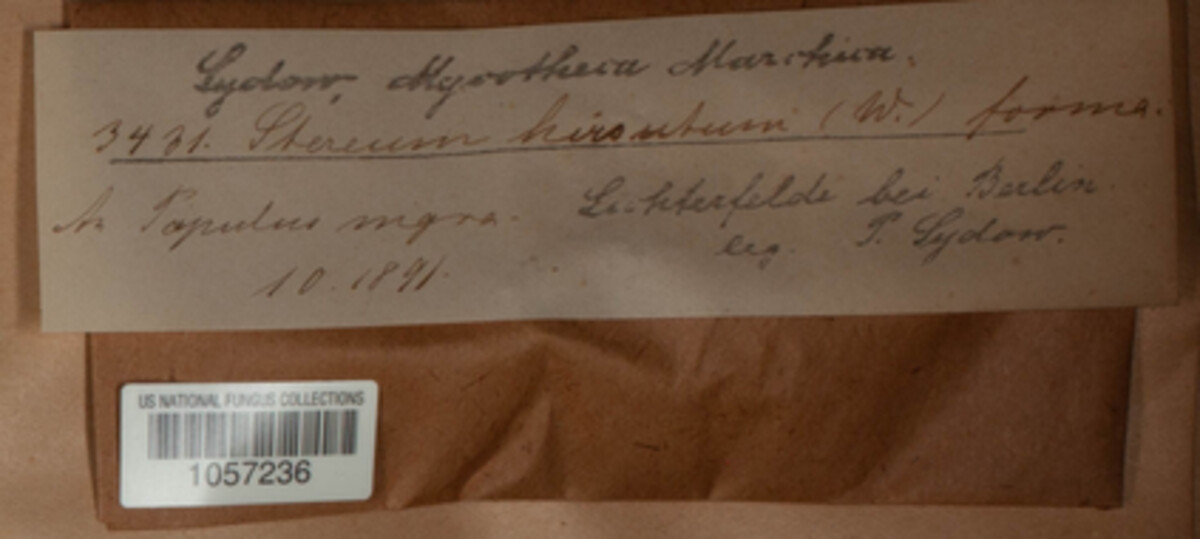 Sydow, Mycotheca Marchica.
3431. Stereum hirsutum (W.) forma.
An Populus nigra. Lichterfelde bei Berlin.
10. 1891. leg. P. Sydow.
US NATIONAL FUNGUS COLLECTIONS
1057236